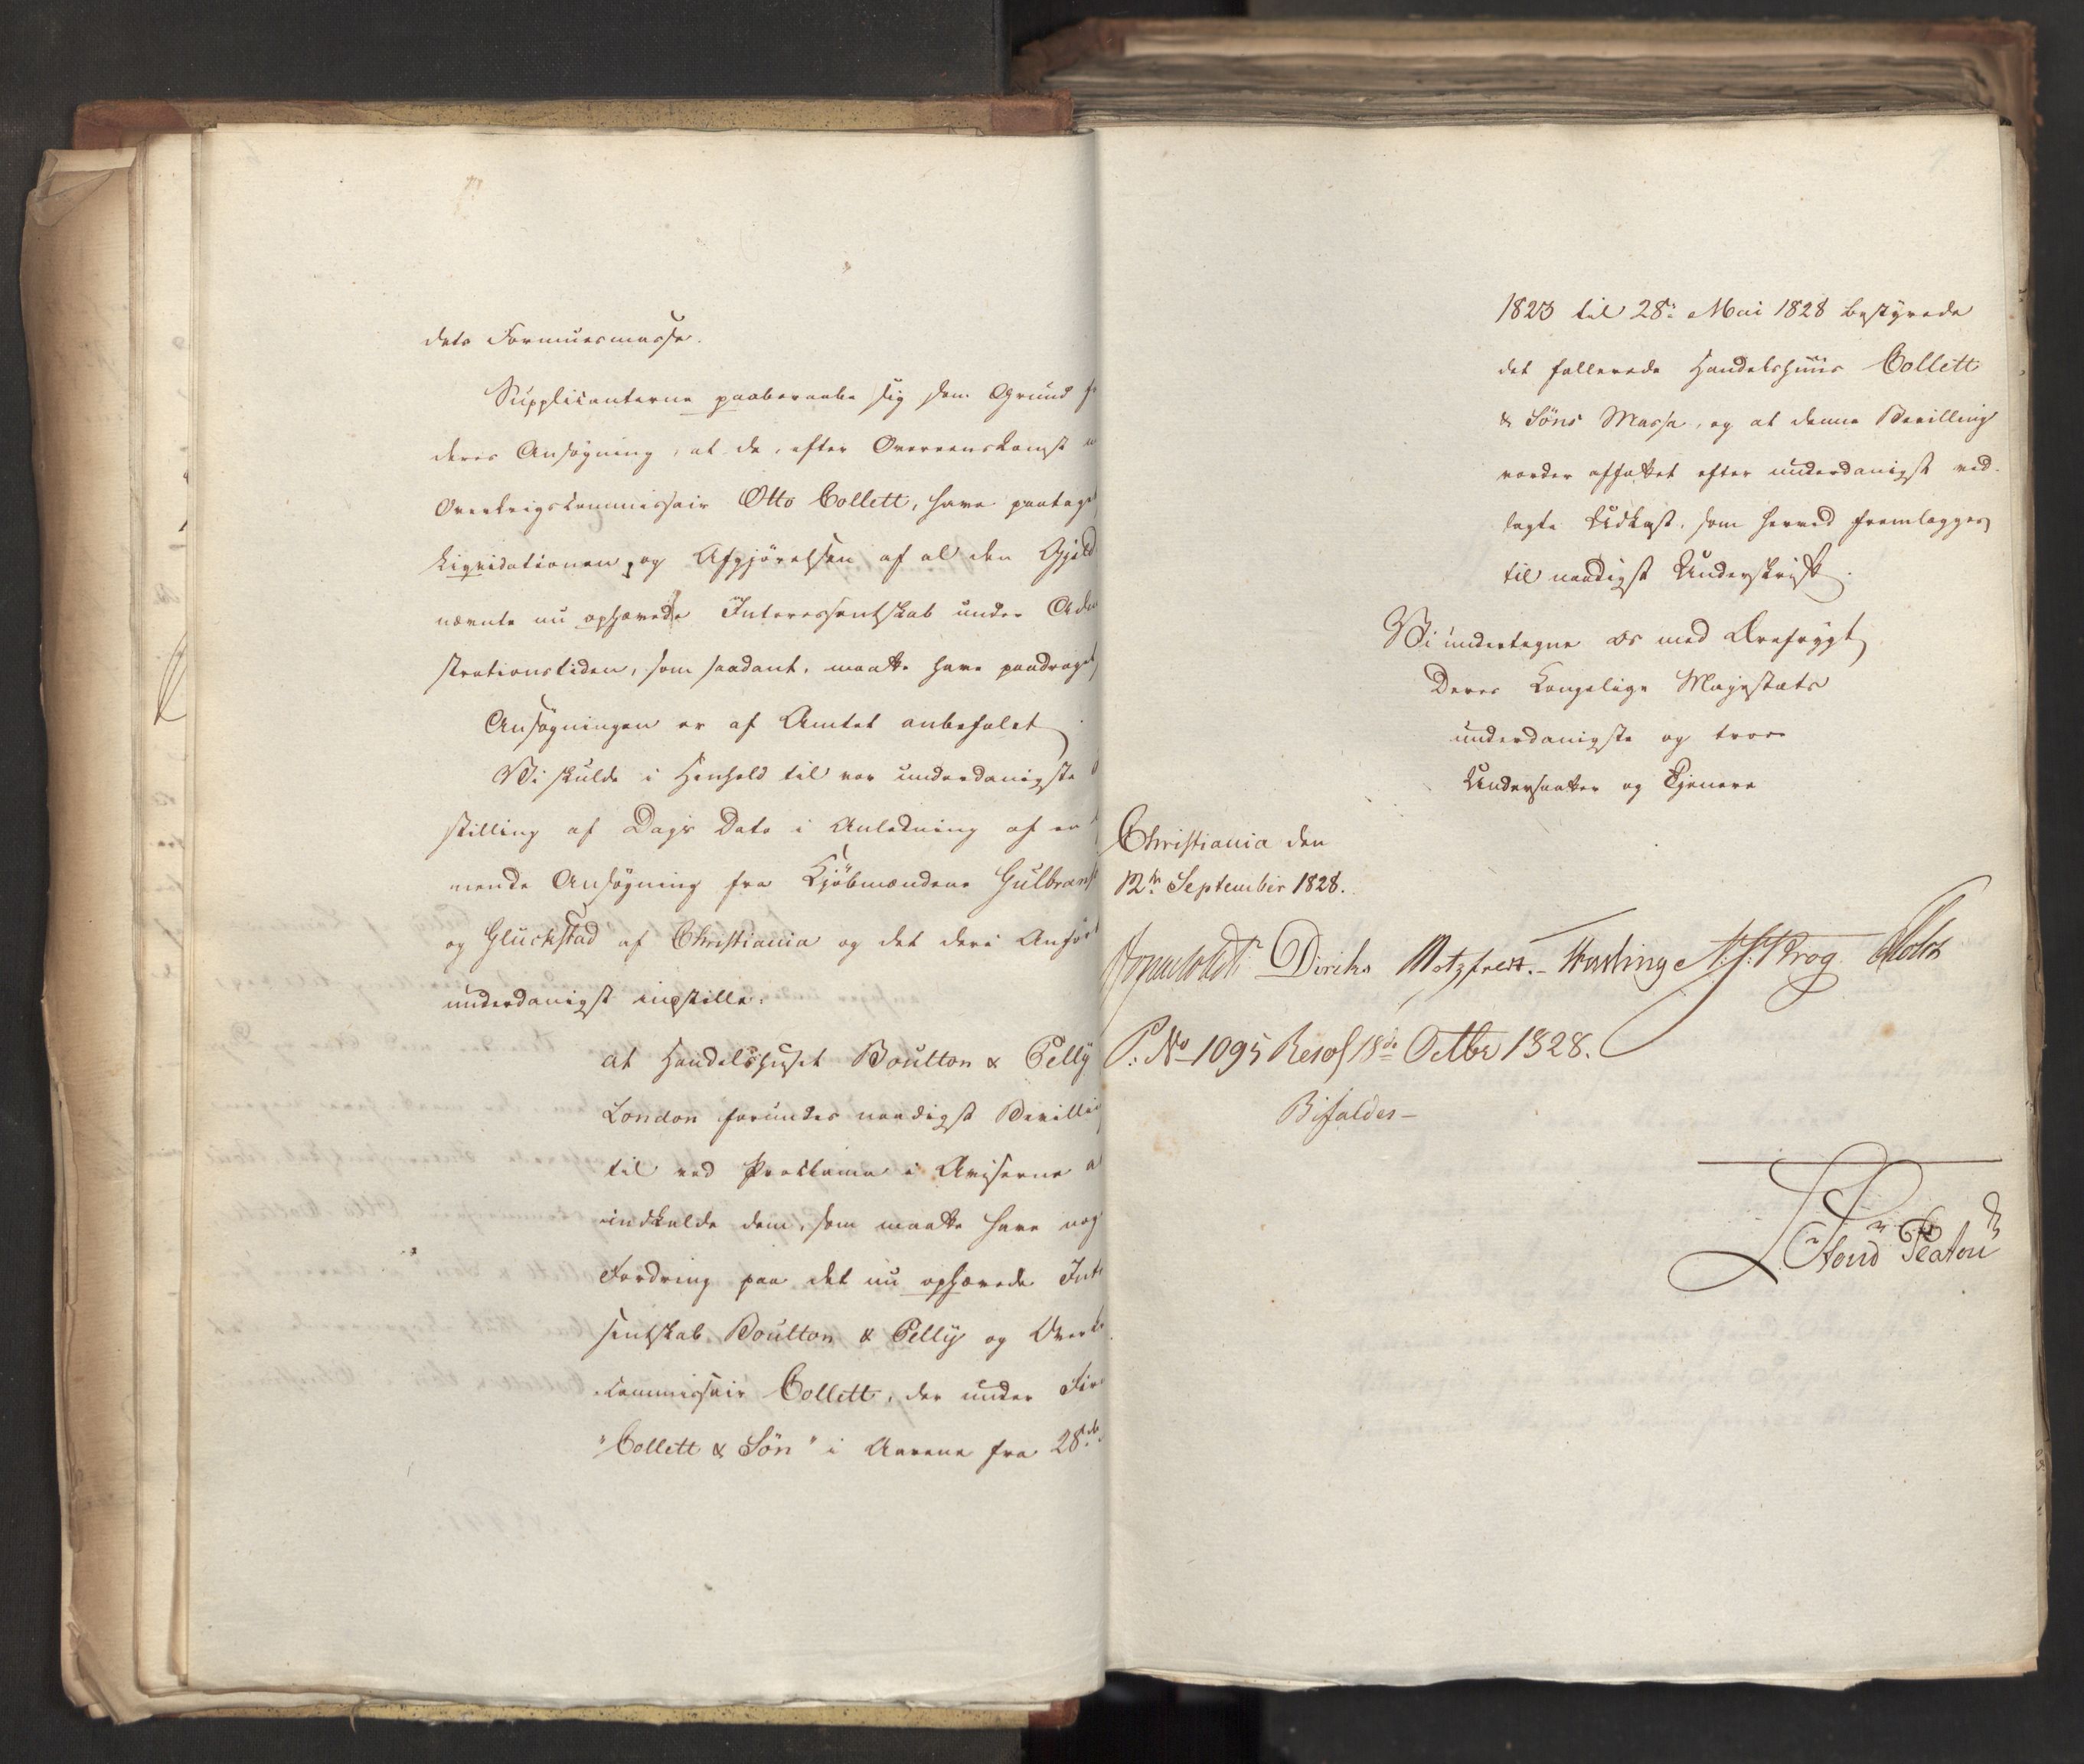 dets Formuesmasse.
Supplicanterne paaberaabe sig som Grund f
deres Ansøgning, at de, efter Overeenskomst
Overkrigscommissair Otto Collett, have paataget
Liqvidationen og Afgjørelsen af al den Gjeld
nævnte nu ophævede Interessentskab under Adm
strationstiden, som saadant, maatte have paadraget
Ansøgningen er af Amtet anbefalet
Vi skulde i Henhold til vor underdanigste
stilling af Dags Dato i Anledning af en
nende Ansøgning fra Kjøbmændene Gulbrans
og Glückstad af Christiania og det deri Anført
underdanigst indstille:
at Handelshuset Boulton & Pelly
London forundes naadigst Bevillin
til ved Proclama i Aviserne a
indkalde dem, som maatte have nog
Fordring paa det nu ophævede Inte
sentskab Boulton & Pelly og Overk
commissair Collett, der under Fir
"Collett & Søn" i Aarene fra 28de
1823 til 28de Mai 1828 bestyrede
det fallerede Handelshuus Collett
& Søns Masse, og at denne Bevilling
vorder affattet efter underdanigst ved-
lagte Udkast, som herved fremlægges
til naadigst Underskrift.
Vi undertegne os med Ærefrygt
Deres Kongelige Majestæts
underdanigste og troe
Undersaatter og Tjenere
Christiania den
12te September 1828.
Diriks Motzfeldt. Fasting Krog Holst
P: No 1095 Resol 18de Octbr 1828.
Bifaldes-